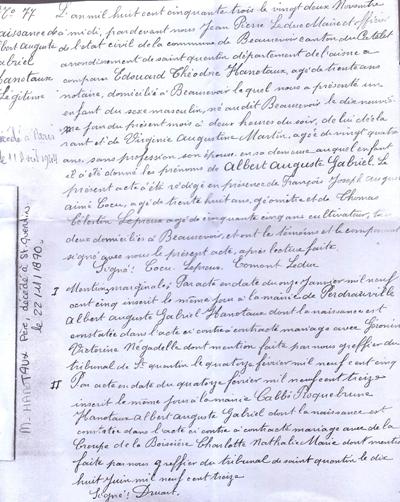 N° 77
Naissance de
Albert auguste
Gabriel
Hanotaux
Légitime
décédé à Paris
le 11 avril 1944
M. HANOTAUX Père décédé à St Quentin
le 22/11/1890.
L'an mil huit cent cinquante trois le vingt deux Novembre
à midi, pardevant nous Jean Pierre Leduc Maire et officier
de l'état civil de la commune de Beaurevoir canton du Catelet
arrondissement de saint quentin département de l'aisne a
comparu Edouard Théodore Hanotaux, agé de trente ans
notaire, domicilié à Beaurevoir lequel nous a présenté un
enfant du sexe masculin, né audit Beaurevoir le dix neuvi-
ème jour du présent mois à deux heures du soir, de lui décla
rant et de Virginie Augustine Martin, agée de vingt quatre
ans, sans profession, son épouse, en sa demeure, auquel enfant
il a été donné les prénoms de Albert Auguste Gabriel. Le
présent acte a été rédigé en présence de François Joseph Augus
aimé Cocu, agé de trente huit ans, géomètre et de Thomas
Célestin Lepreux agé de cinquante cinq ans cultivateur, tous
deux domiciliés à Beaurevoir, et ont les témoins et le comparant
signé avec nous le présent acte, après lecture faite.
Signé: Cocu. Lepreux. Leduc
I Mentions marginales: Par acte en date du onze Janvier mil neuf
cent cinq inscrit le même jour à la mairie de
Albert auguste Gabriel Hanotaux dont la naissance est
constatée dans l'acte ci contre a contracté mariage avec
Victorine Négadelle dont mention faite par nous greffier du
tribunal de St quentin le quatorze février mil neuf cent cinq
II Par acte en date du quatorze février mil neuf cent treize
inscrit le même jour à la mairie Roquebrune
Hanotaux Albert Auguste Gabriel dont la naissance est
constatée dans l'acte ci contre a contracté mariage avec de la
Croupe de la Boissière Charlotte Nathalie Marie dont mention
faite par nous greffier du tribunal de saint quentin le dix
huit Juin mil neuf cent treize
Signé: Druart.